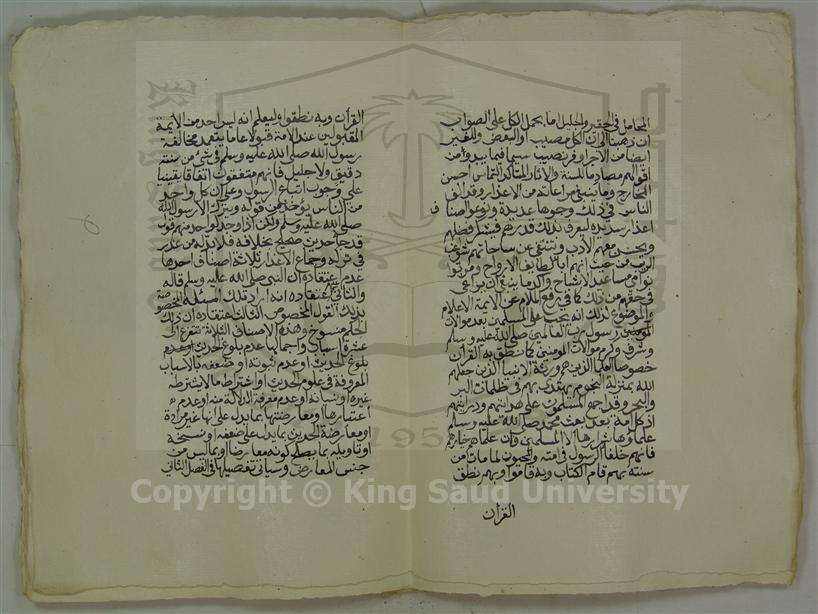 المحامل في الحقير والجليل ما يحمل الكل على الصواب
ان ذهبنا الى ان كل مصيب او البعض وللغير
ايضا من الاجر اوفر نصيب سيما فيما يبدو من
اقوالهم مصادما للسنة والاثار المتأكد التماس احسن
المخارج وما ينبغي مراعاته من الاعذار وقد الف
الناس في ذلك وجوها عديدة ونوعوا اصنا ف
اعذار سديدة ليعرف بذلك قدرهم فضلهم
ويحسن معهم الادب وتنتفي عن ساحاتهم شوائب
الريب من حيث انهم اباء لطايف الارواح ومربوا
في حقهم من ذلك كما في رفع الملام عن الايمة الاعلام
والموضوع لذلك انه يجب على المسلمين بعد موالات
المومنين رسول رب العالمين صلى الله عليه وسلم
وشرف وكرم موالات المومنين كما نطق به القرآن
خصوصا العلما الذين هم ورثة الانبيا الذين جعلهم
الله بمنزلة النجوم يهتدى بهم في ظلمات البر
والبحر وقد اجمع المسلمون على هدايتهم ودرايتهم
اذ كل امة بعد بعث محمد صلى الله عليه وسلم
علماوها شرارها الا المسلمين فان علماهم خيارهم
فانهم خلفا الرسول في امته والمحيون لما مات من
سنته بهم قام الكتاب وبه قاموا وبهم نطق
القران
القرآن وبه نطقوا وليعلم انه ليس احد من الايمة
المقبولين عند الامة قبولا عاما يتعمد مخالفة
رسول الله صلى الله عليه وسلم في شئ من سنته
دقيق ولا جليل فانهم متفقون اتفاقا يقينيا
على وجوب اتباع الرسول وعلى ان كل واحد
من الناس يؤخذ من قوله ويترك الا رسول الله
صلى الله عليه وسلم ولكن اذا وجد لواحد منهم قول
قد جا حديث صحيح بخلافه فلا بد له من عذر
في تركه وجماع الاعذار ثلاثة اصناف احدها
عدم اعتقاده ان النبي صلى الله عليه وسلم قاله
والثاني عدم اعتقاده انه اراد تلك المسئلة المخصوصة
بذلك القول المخصوص الثالث اعتقاده ان ذلك
الحكم منسوخ وهذه الاصناف الثلاثة تتفرع الى
عشرة اسباب واجمالها عدم بلوغ الحديث او عدم
بلوغ الحديث او عدم ثبوته او ضعفه بالاسباب
المعروفة في علوم الحديث او اشتراط ما لا يشترطه
غيره او نسيانه او عدم معرفة الدلالة منه او عدم
اعتبارها ومعارضتها بما يدل على انها غير مرادة
او معارضة الحديث بما يدل على ضعفه او نسخه
او تاويله بما يصلح كونه معارضا او بما ليس من
جنس المعارض وسياتي تفصيلها في الفصل الثاني
Copyright © King Saud University
195